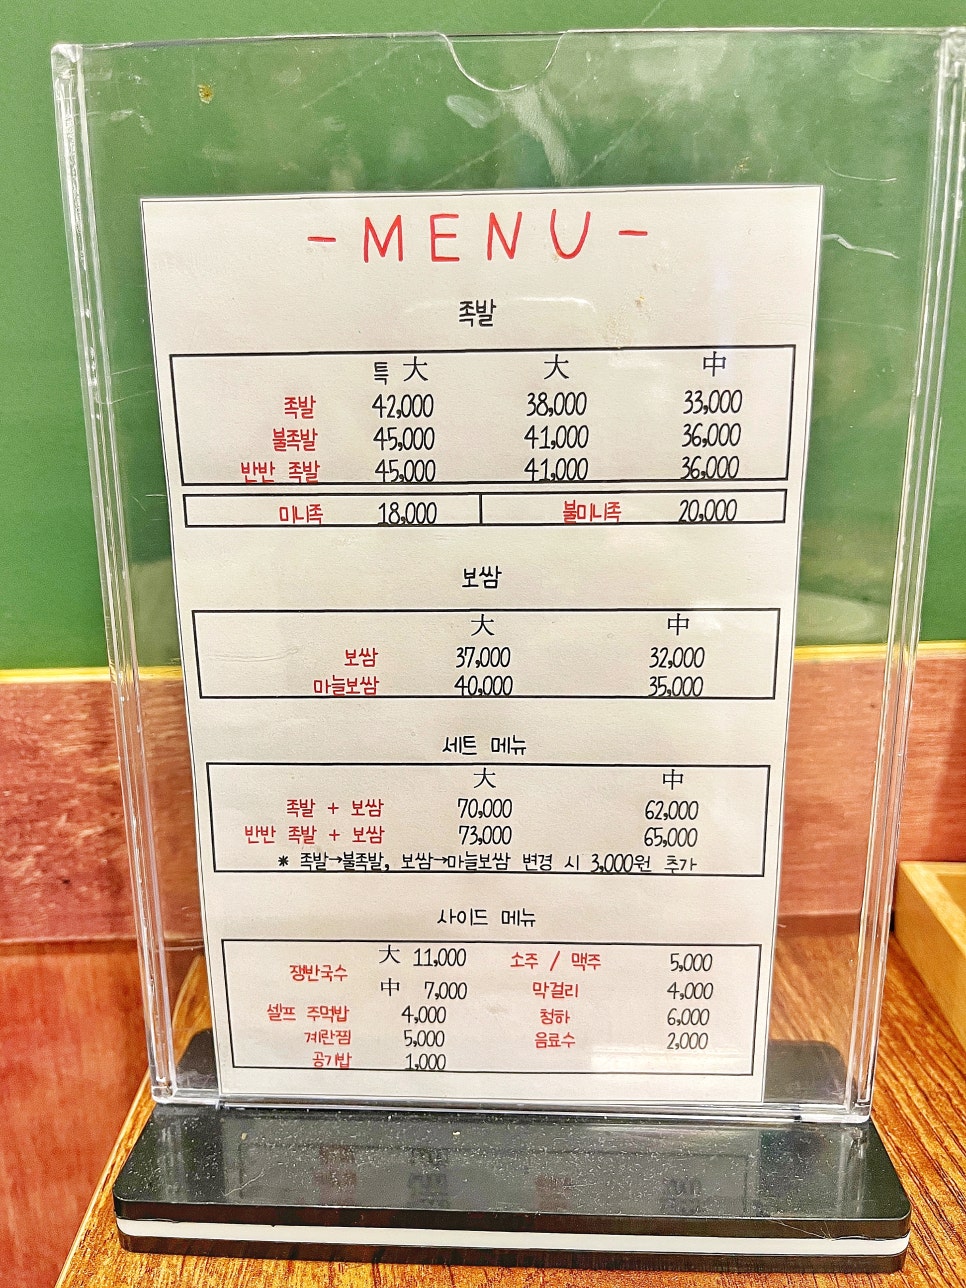 - MENU -
족발
특 大 大 中
족발 42,000 38,000 33,000
불족발 45,000 41,000 36,000
반반 족발 45,000 41,000 36,000
미니족 18,000 불미니족 20,000
보쌈
大 中
보쌈 37,000 32,000
마늘보쌈 40,000 35,000
세트 메뉴
大 中
족발 + 보쌈 70,000 62,000
반반 족발 + 보쌈 73,000 65,000
* 족발→불족발, 보쌈→마늘보쌈 변경 시 3,000원 추가
사이드 메뉴
쟁반국수 大 11,000 소주 / 맥주 5,000
中 7,000 막걸리 4,000
셀프 주먹밥 4,000 청하 6,000
계란찜 5,000 음료수 2,000
공기밥 1,000